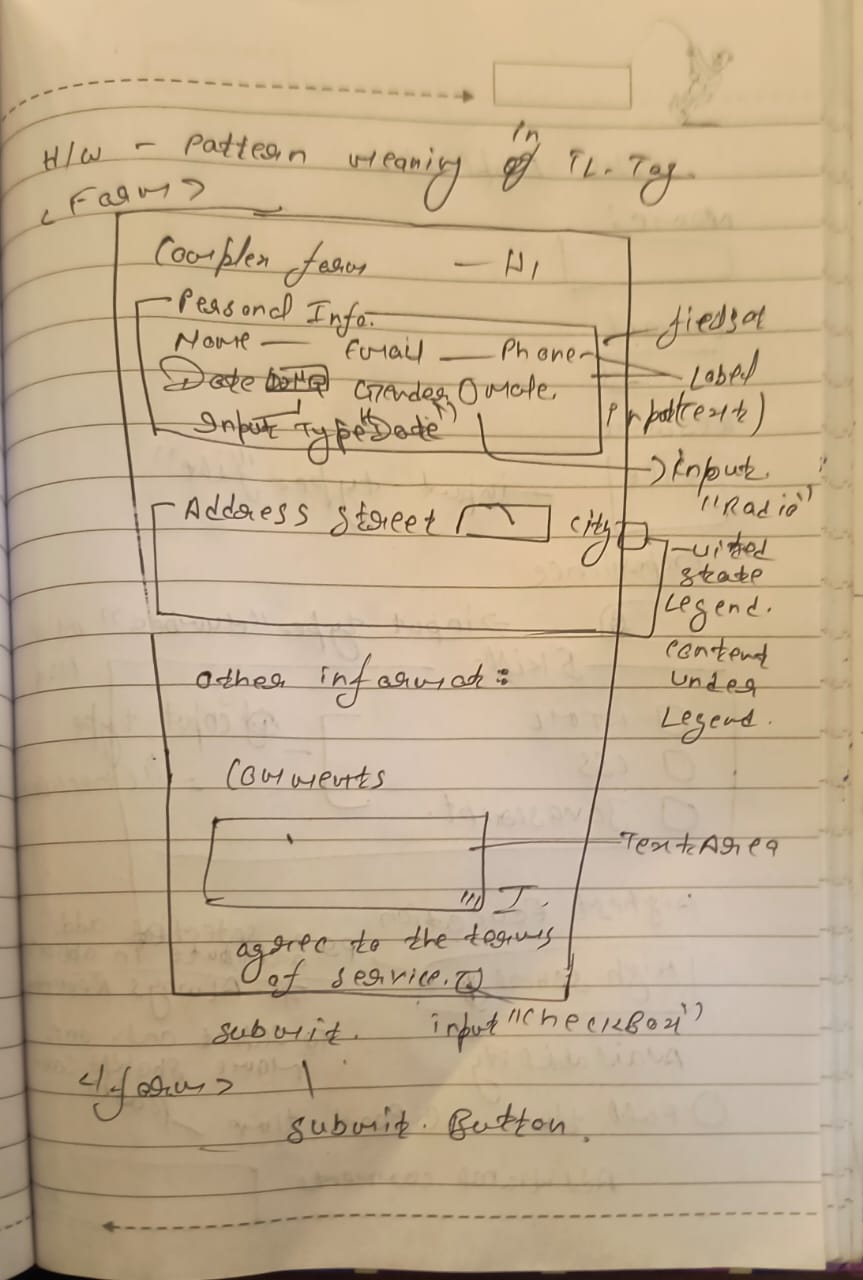 H/W - Pattern meaning of in TL. Tag.
<Form>
Complex form - H1
Personal Info.
Name - Email - Phone -
fiedset
Date Gender O male.
Label
Input Type "Date"
input(text)
input.
"Radio"
Address Street
City
-uited
state
Legend.
content
under
Legend.
other informat:
Comments
TextArea
I
agree to the terms
of service.
submit. input "CheckBox"
</form>
submit. Button.